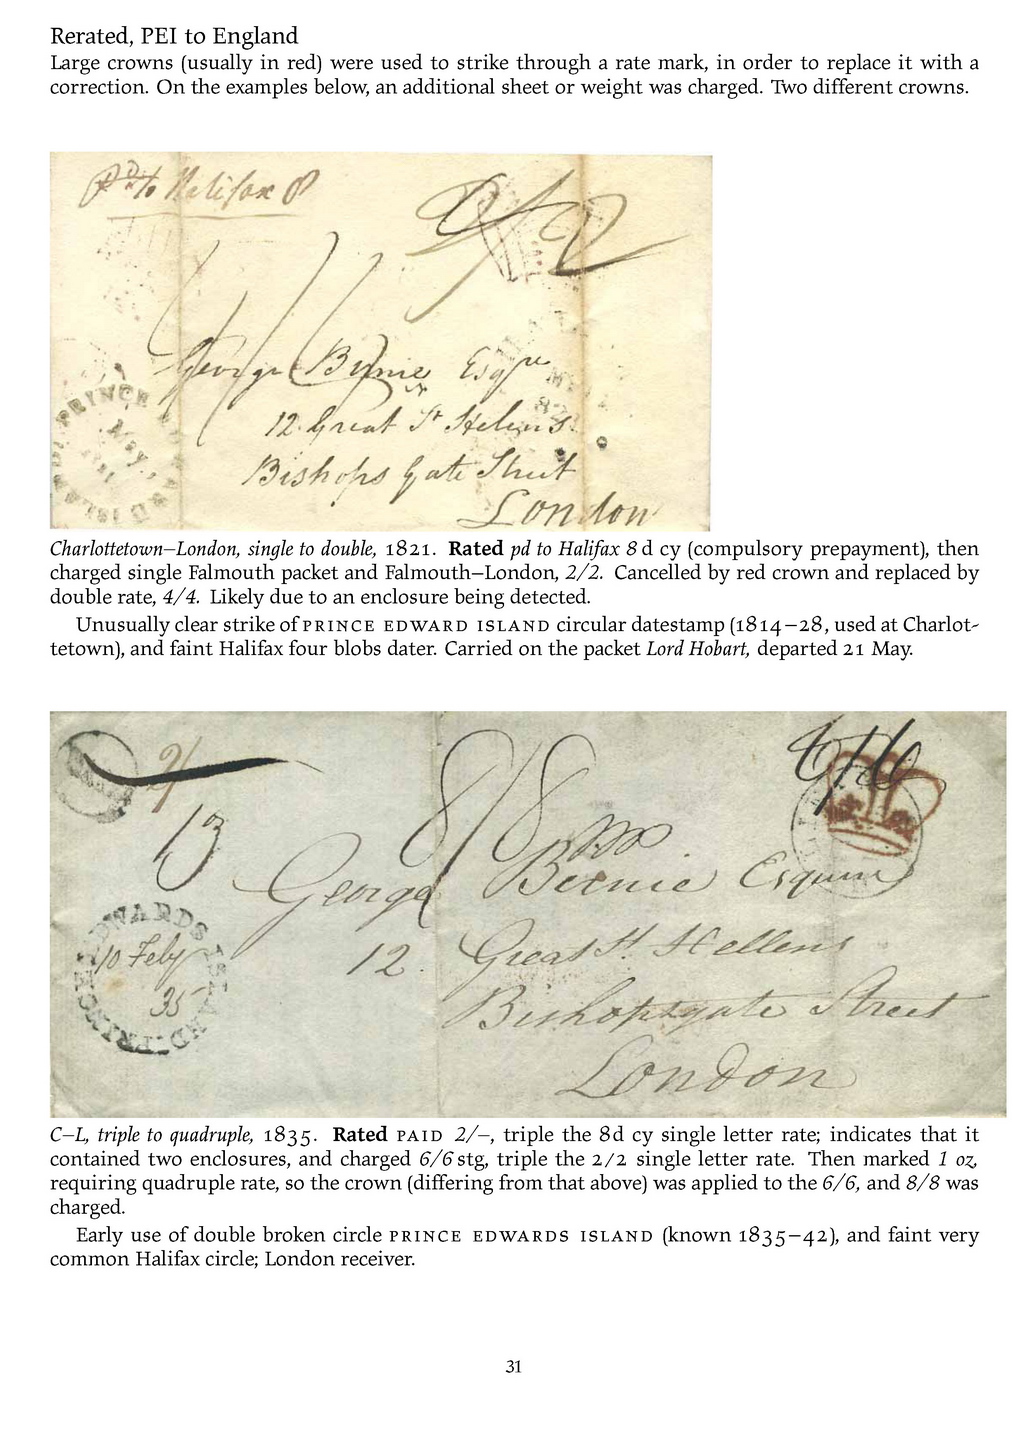 Rerated, PEI to England
Large crowns (usually in red) were used to strike through a rate mark, in order to replace it with a
correction. On the examples below, an additional sheet or weight was charged. Two different crowns.
Pd to Halifax 8
2/2
4/4
George Birnie Esqre
12 Great St Helens
Bishops Gate Street
London
PRINCE EDWARD ISLAND
Charlottetown–London, single to double, 1821. Rated pd to Halifax 8 d cy (compulsory prepayment), then
charged single Falmouth packet and Falmouth–London, 2/2. Cancelled by red crown and replaced by
double rate, 4/4. Likely due to an enclosure being detected.
Unusually clear strike of PRINCE EDWARD ISLAND circular datestamp (1814–28, used at Charlot-
tetown), and faint Halifax four blobs dater. Carried on the packet Lord Hobart, departed 21 May.
2/
6/6
8/8
George Birnie Esquire
12 Great St. Hellens
Bishopsgate Street
London
PRINCE EDWARDS ISLAND
10 Feby
35
C–L, triple to quadruple, 1835. Rated PAID 2/–, triple the 8d cy single letter rate; indicates that it
contained two enclosures, and charged 6/6 stg, triple the 2/2 single letter rate. Then marked 1 oz,
requiring quadruple rate, so the crown (differing from that above) was applied to the 6/6, and 8/8 was
charged.
Early use of double broken circle PRINCE EDWARDS ISLAND (known 1835–42), and faint very
common Halifax circle; London receiver.
31